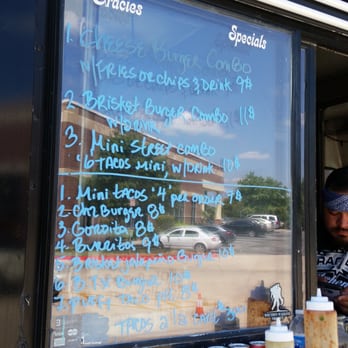 Gracies
Specials
1. Cheese Burger Combo
w/Fries or chips & Drink 9$
2. Brisket Burger Combo 11$
w/Drink
3. Mini Street Combo
"6 Tacos Mini w/Drink 10$
1. Mini tacos "4" per order 7$
2. Chz Burger 8$
3. Gordita 8$
4. Burritos 9$
5. Brisket Burger 10$
Tacos 3